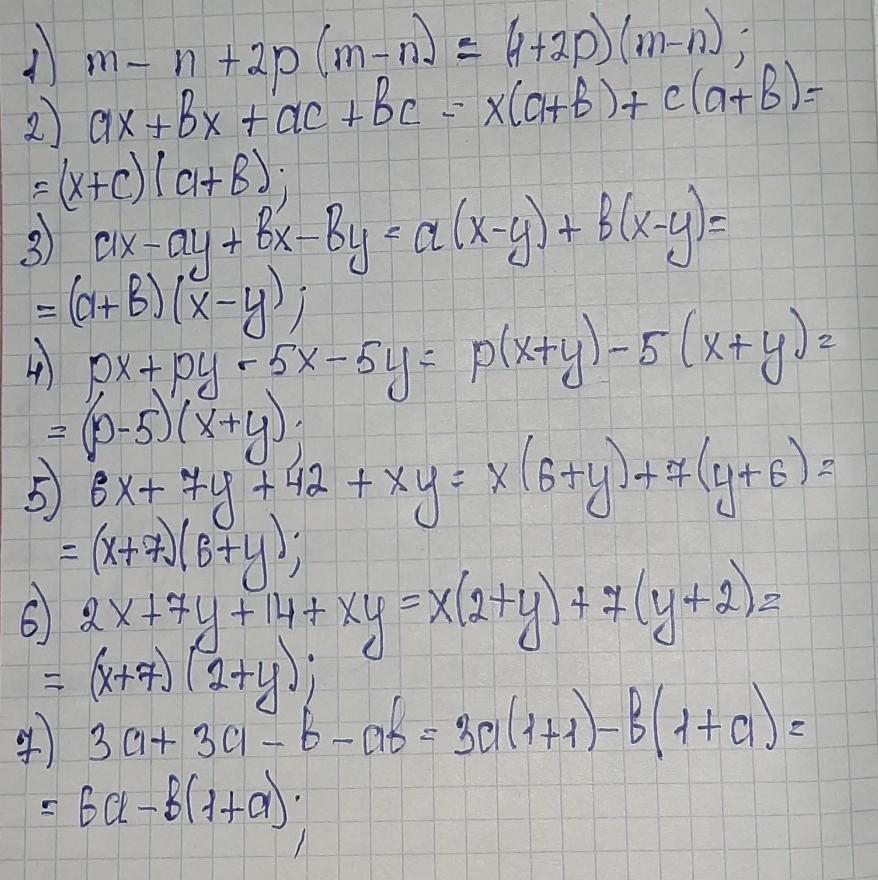 1) m - n + 2p (m-n) = (1+2p)(m-n);
2) ax + bx + ac + bc = x(a+b) + c(a+b) =
= (x+c)(a+b);
3) ax - ay + bx - by = a(x-y) + b(x-y) =
= (a+b)(x-y);
4) px + py - 5x - 5y = p(x+y) - 5(x+y) =
= (p-5)(x+y);
5) 6x + 7y + 42 + xy = x(6+y) + 7(y+6) =
= (x+7)(6+y);
6) 2x + 7y + 14 + xy = x(2+y) + 7(y+2) =
= (x+7)(2+y);
7) 3a + 3a - b - ab = 3a(1+1) - b(1+a) =
= 6a - b(1+a);